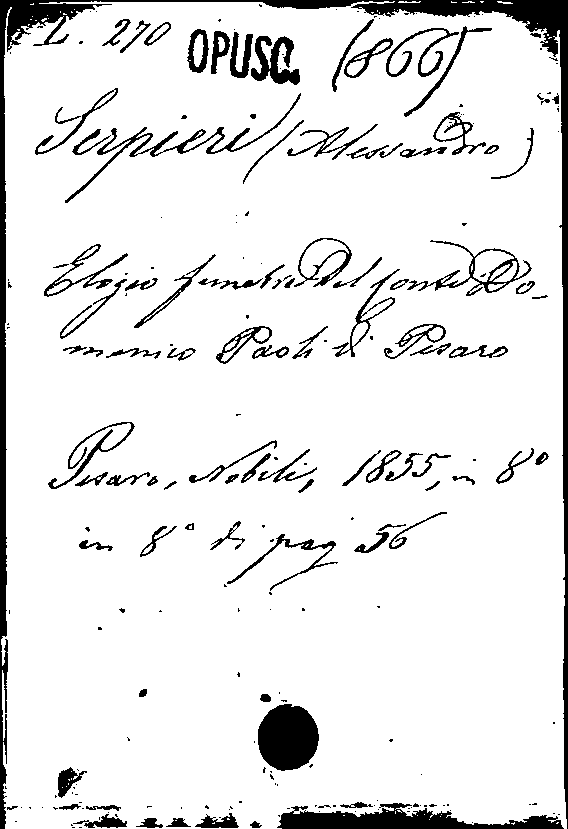 L. 270 OPUSC. (866)
Serpieri (Alessandro)
Elogio funebre del Conte Do-
menico Paoli di Pesaro
Pesaro, Nobili, 1855, in 8°
in 8° di pag 56